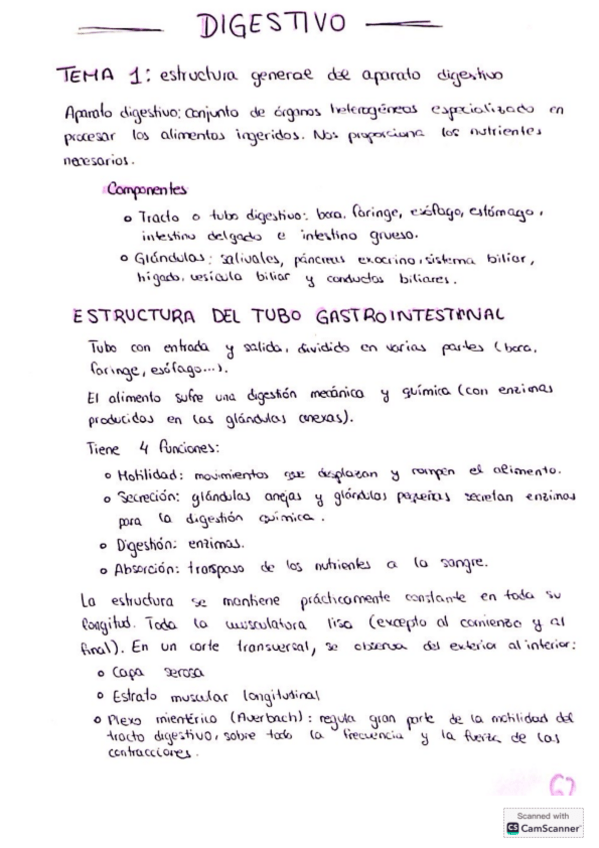 DIGESTIVO
TEMA 1: estructura general del aparato digestivo
Aparato digestivo: conjunto de órganos heterogéneos especializado en
procesar los alimentos ingeridos. Nos proporciona los nutrientes
necesarios.
Componentes
o Tracto o tubo digestivo: boca, faringe, esófago, estómago,
intestino delgado e intestino grueso.
o Glándulas: salivales, páncreas exocrino, sistema biliar,
hígado, vesícula biliar y conductos biliares.
ESTRUCTURA DEL TUBO GASTROINTESTINAL
Tubo con entrada y salida, dividido en varias partes (boca,
faringe, esófago...).
El alimento sufre una digestión mecánica y química (con enzimas
producidas en las glándulas anexas).
Tiene 4 funciones:
o Motilidad: movimientos que desplazan y rompen el alimento.
o Secreción: glándulas anejas y glándulas pequeñas secretan enzimas
para la digestión química.
o Digestión: enzimas.
o Absorción: traspaso de los nutrientes a la sangre.
La estructura se mantiene prácticamente constante en toda su
longitud. Toda la musculatura lisa (excepto al comienzo y al
final). En un corte transversal, se observa del exterior al interior:
o Capa serosa
o Estrato muscular longitudinal
o Plexo mientérico (Auerbach): regula gran parte de la motilidad del
tracto digestivo, sobre todo la frecuencia y la fuerza de las
contracciones.
67
Scanned with
CS CamScanner